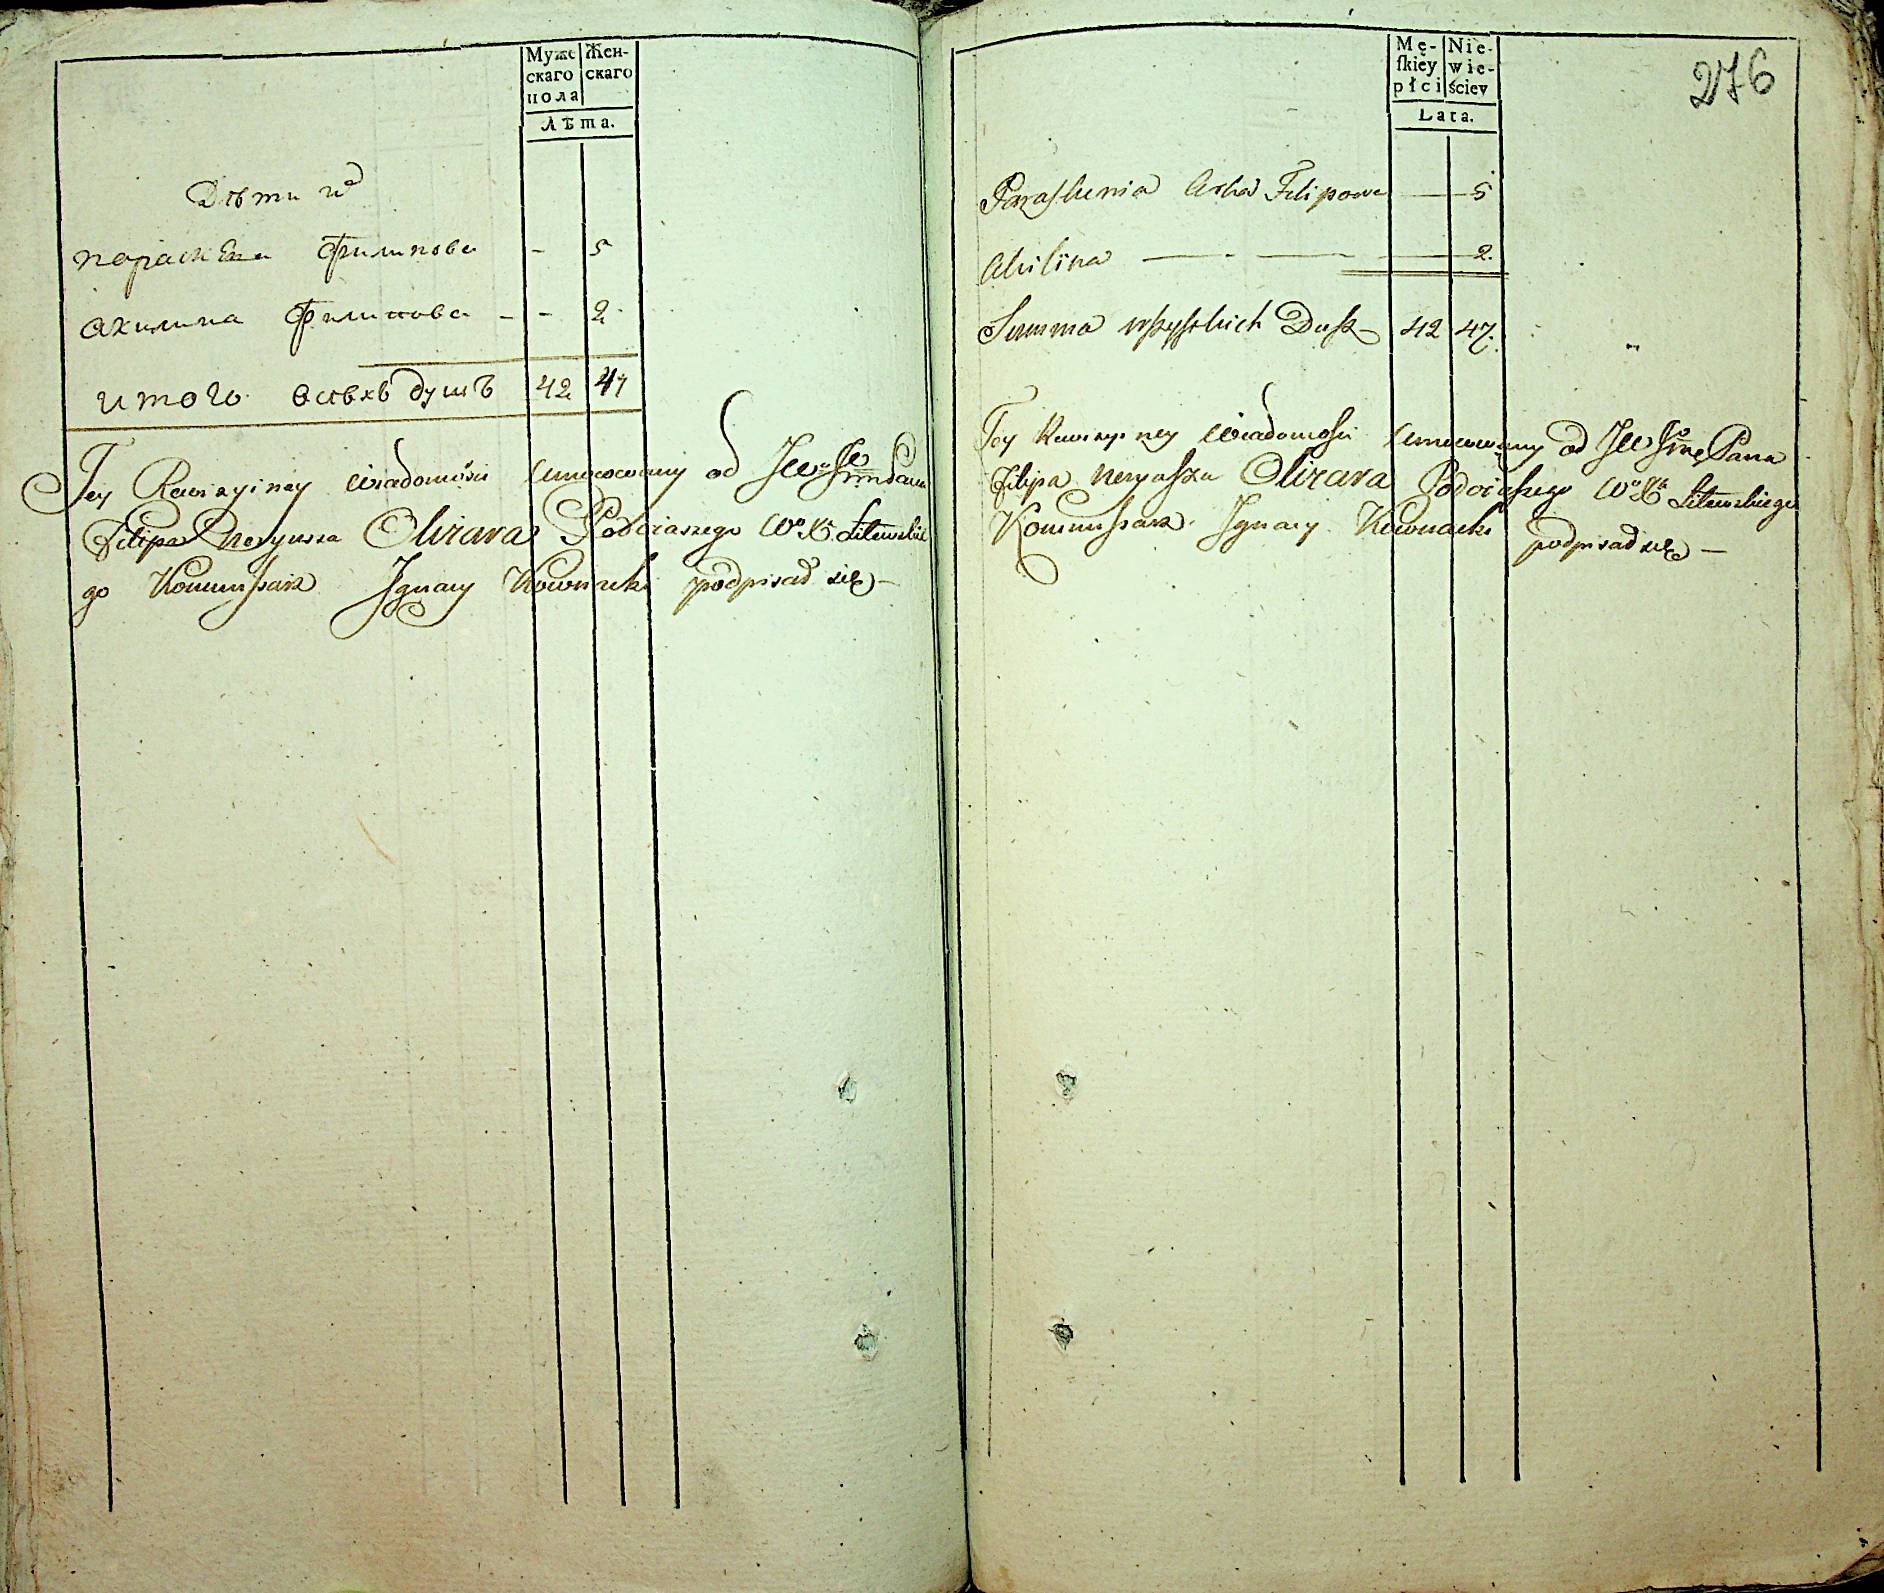 Муже Жен-
скаго скаго
пола
Лѣта.
Дѣти ихъ
параскевиа филипова - 5
акилина филипова - - 2
итого всѣхъ душъ 42 47
Tey Rewizyiney wiadomości umocowany od JW Jmć Pana
Filipa Neryusza Olizara Podczaszego Wo Xa Litewskie
go Kommissarz Ignacy podpisał się —
276
Mę- Nie-
ſkiéy wie-
płci ściey
Lata.
Paraskewia Corka Filipowa — 5
Akilina — — — 2.
Summa wszystkich Dusz 42 47.
Tey Rewizyiney Wiadomości umocowany od JW Jmć Pana
Filipa Neryusza Olizara Podczaszego Wo Xa Litewskiego
Kommissarz Ignacy podpisał się —